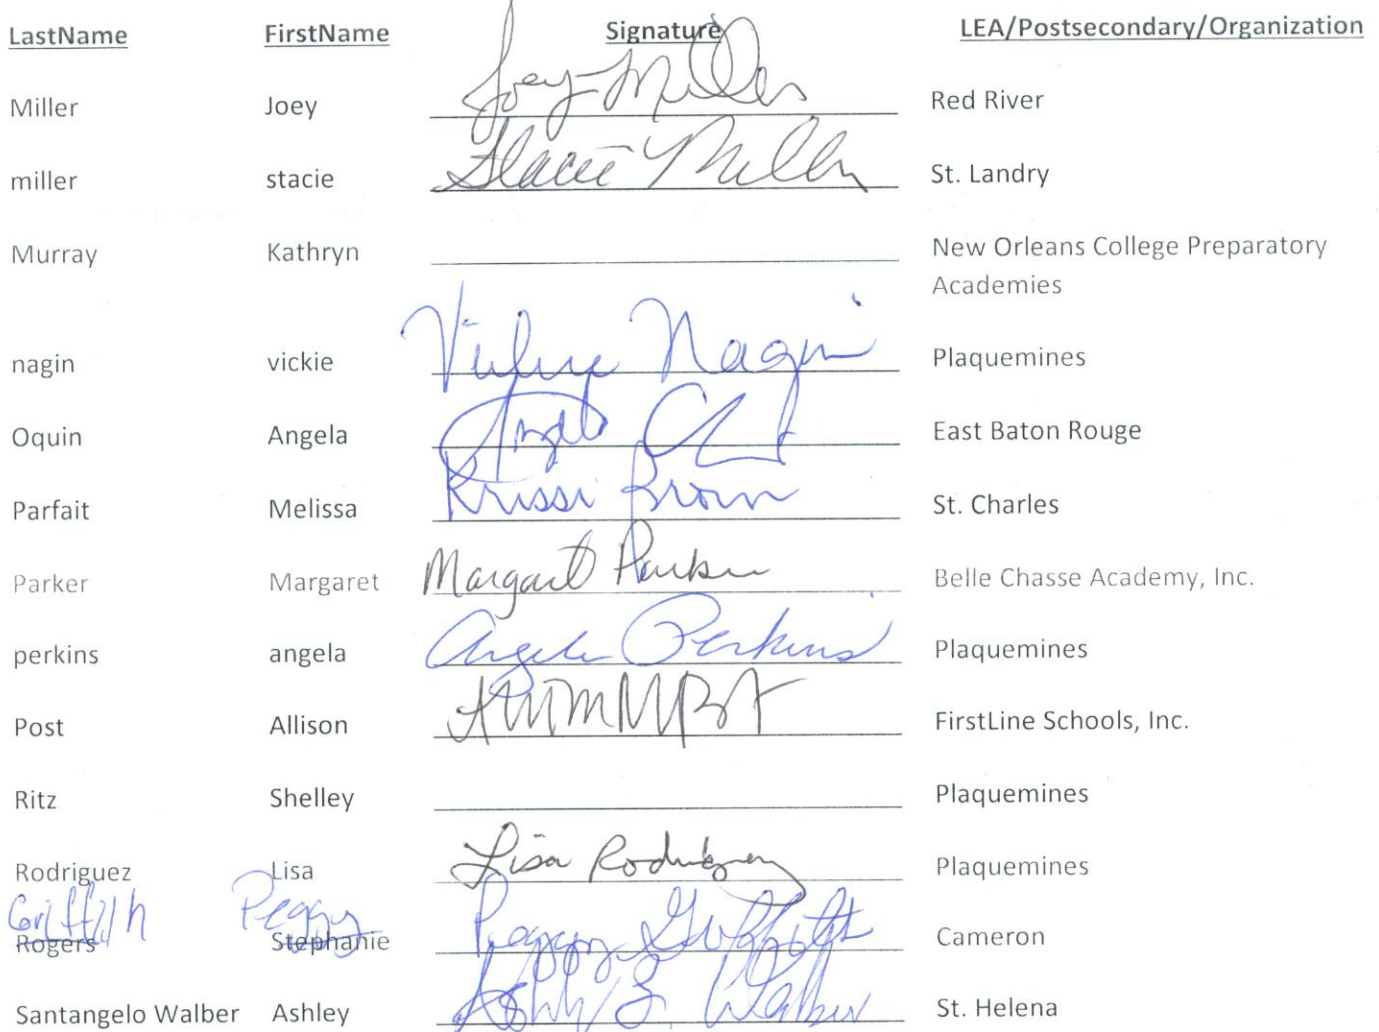 LastName FirstName Signature LEA/Postsecondary/Organization
Miller Joey Joey Miller Red River
miller stacie Stacie Miller St. Landry
Murray Kathryn New Orleans College Preparatory
Academies
nagin vickie Nagin Plaquemines
Oquin Angela Angela East Baton Rouge
Parfait Melissa Krissi Brown St. Charles
Parker Margaret Margaret Parker Belle Chasse Academy, Inc.
perkins angela Angela Perkins Plaquemines
Post Allison FirstLine Schools, Inc.
Ritz Shelley Plaquemines
Rodriguez Lisa Lisa Rodriguez Plaquemines
Griffith Peggy Peggy Griffith
Rogers Stephanie Cameron
Santangelo Walber Ashley Ashley S. Walber St. Helena